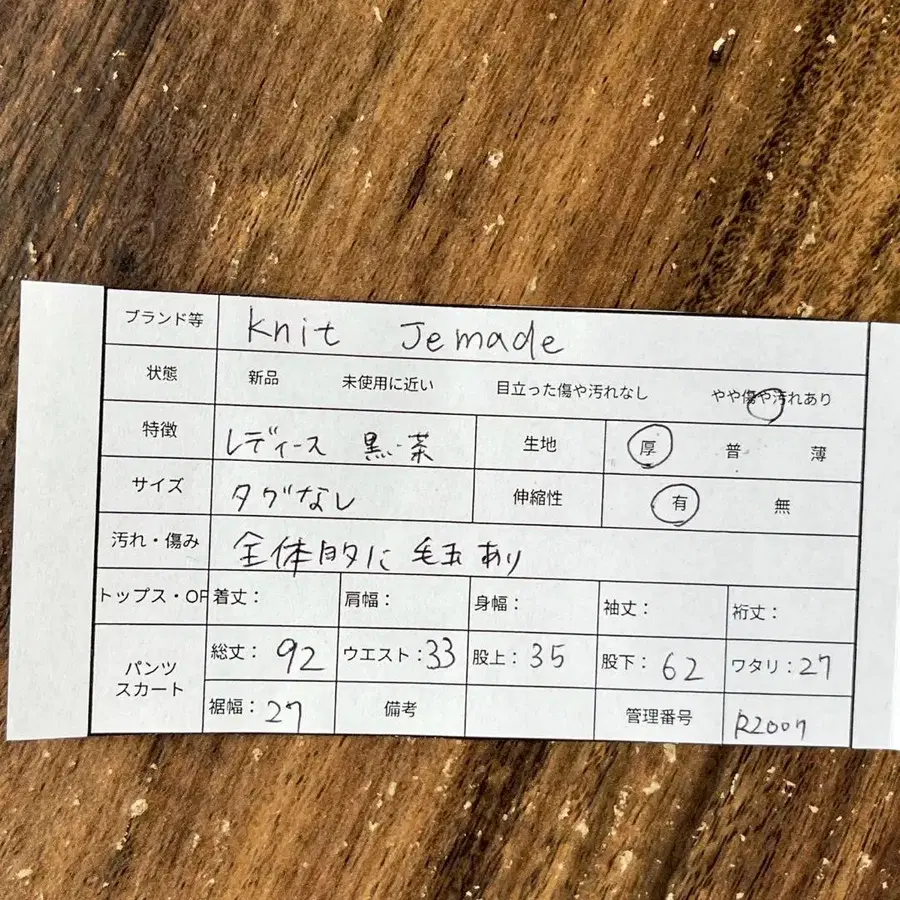 ブランド等 Knit Jemade
状態 新品 未使用に近い 目立った傷や汚れなし やや傷や汚れあり
特徴 レディース 黒・茶 生地 厚 普 薄
サイズ タグなし 伸縮性 有 無
汚れ・傷み 全体的に毛玉あり
トップス・OP 着丈: 肩幅: 身幅: 袖丈: 裄丈:
パンツ スカート 総丈: 92 ウエスト: 33 股上: 35 股下: 62 ワタリ: 27
裾幅: 27 備考 管理番号 R2007